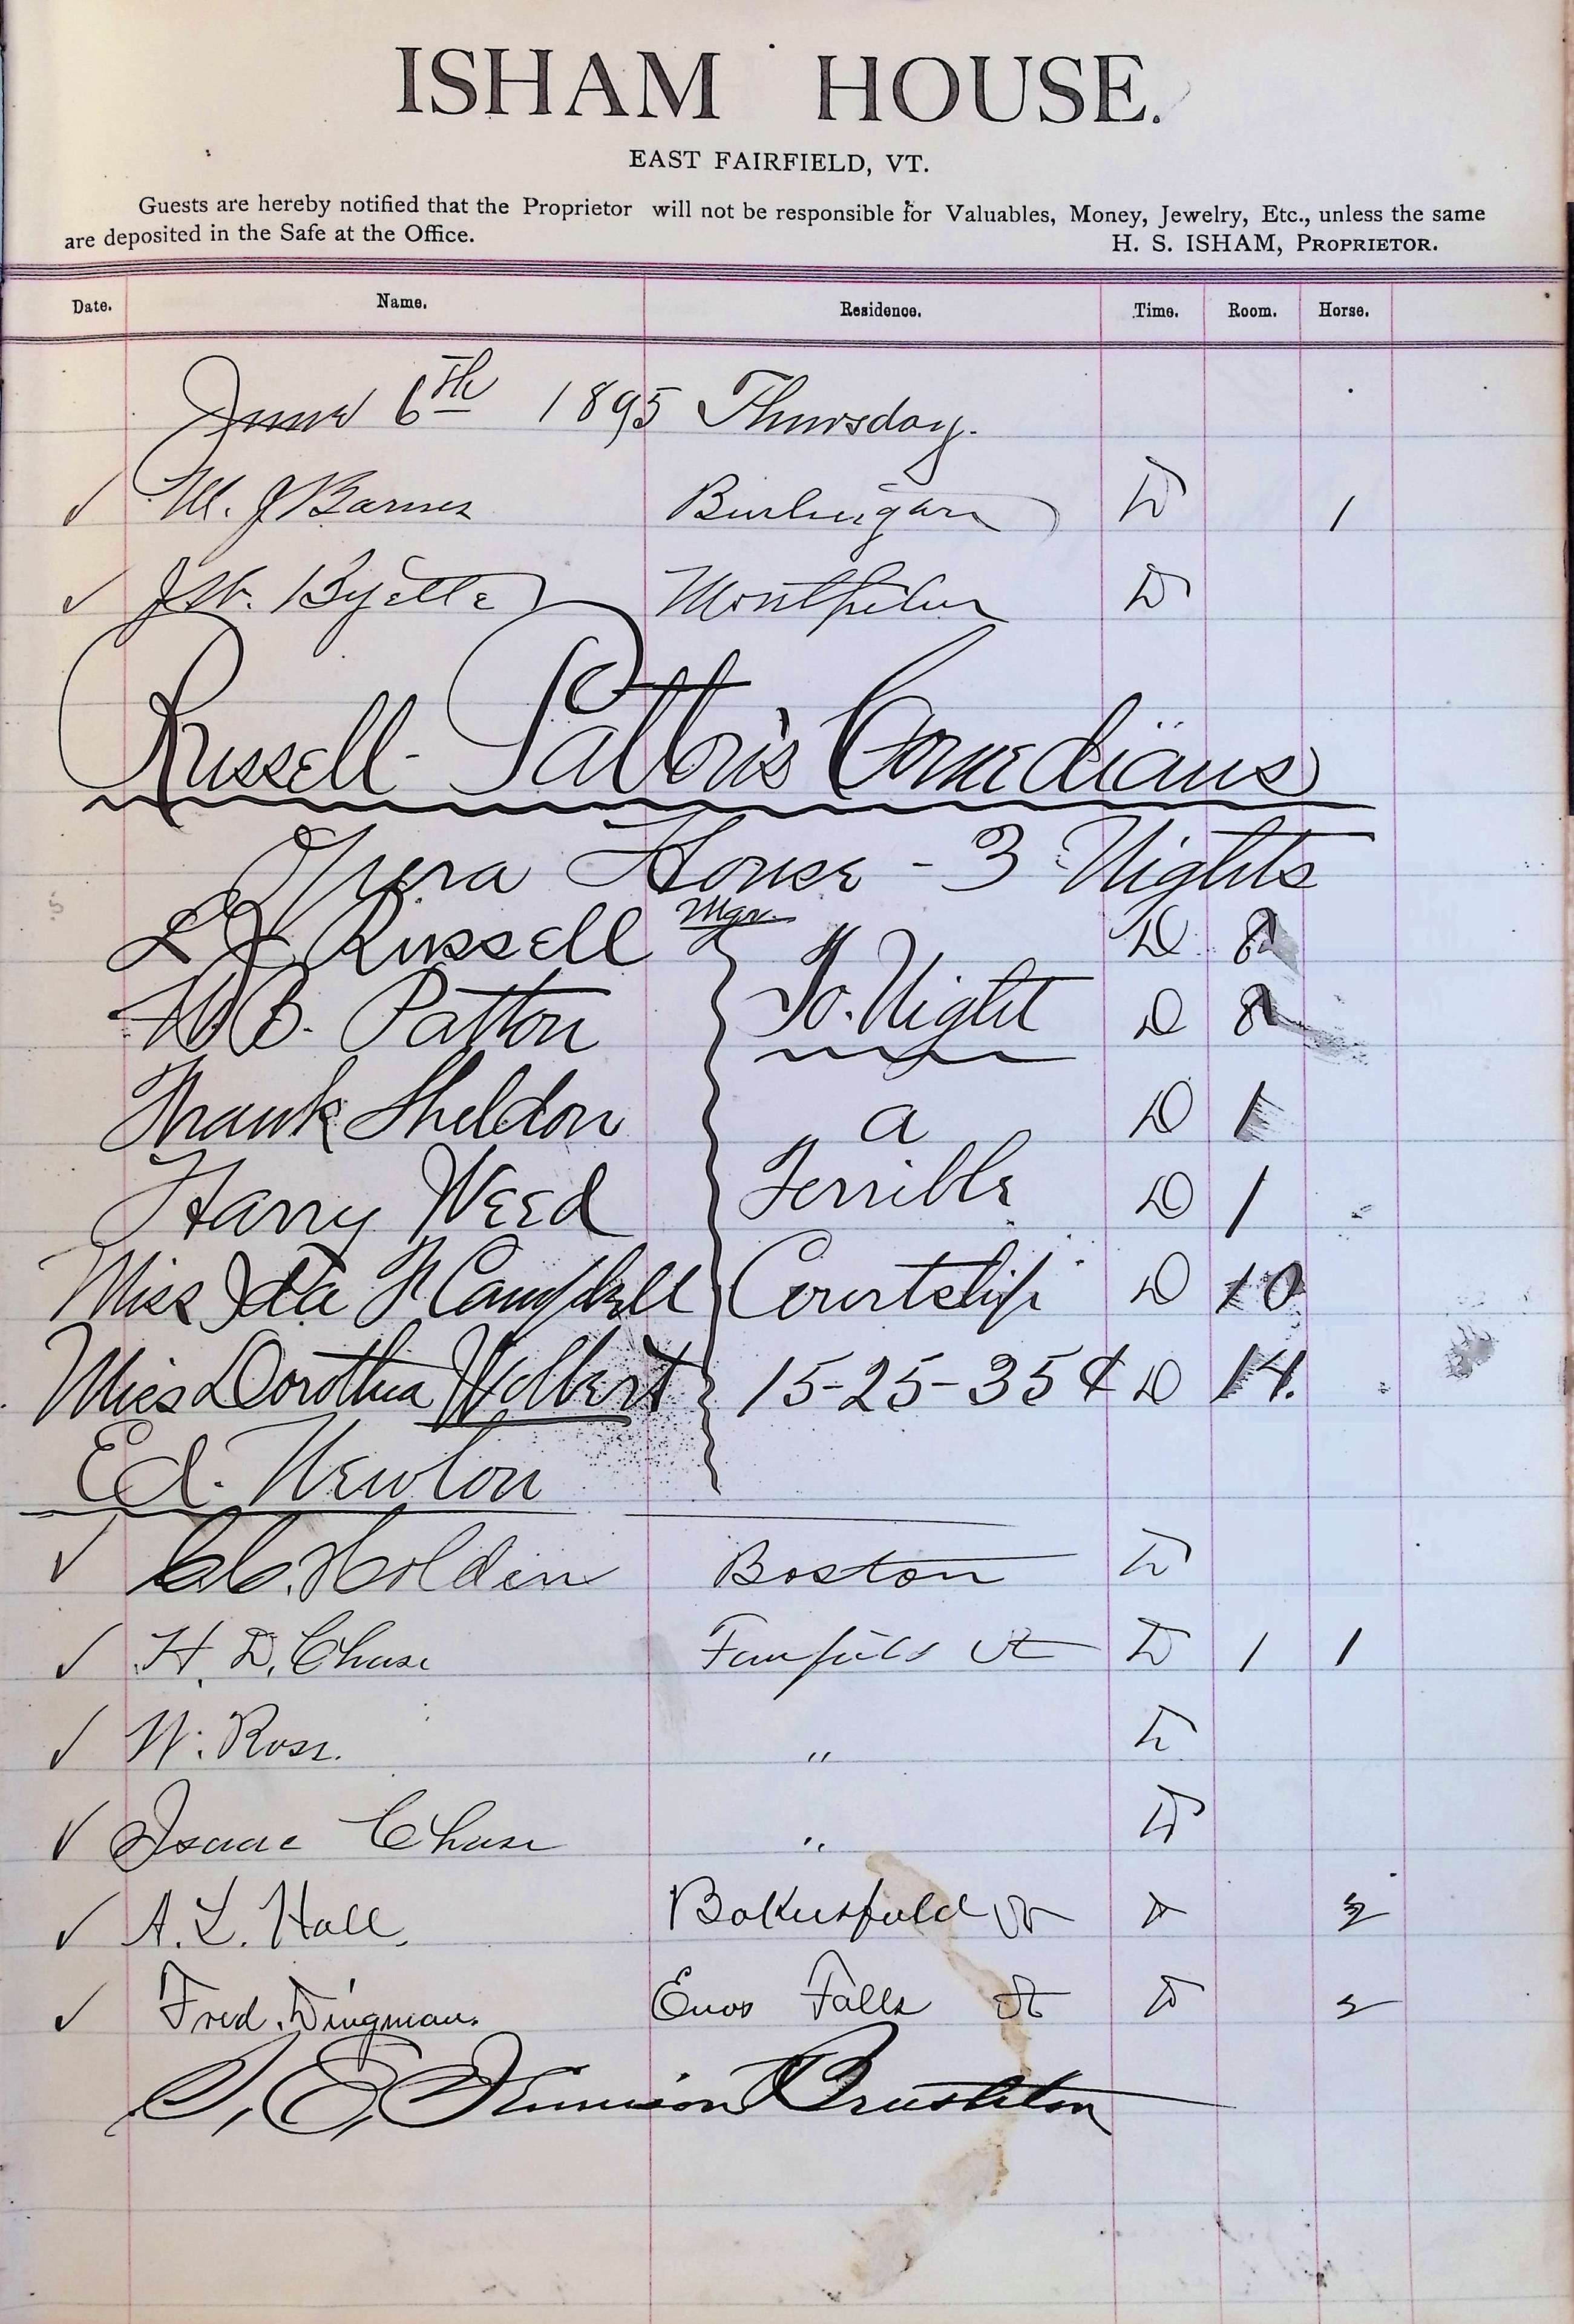 ISHAM HOUSE.
EAST FAIRFIELD, VT.
Guests are hereby notified that the Proprietor will not be responsible for Valuables, Money, Jewelry, Etc., unless the same
are deposited in the Safe at the Office. H. S. ISHAM, PROPRIETOR.
Date. Name. Residence. Time. Room. Horse.
June 6th 1895 Thursday.
✓ M. J Barnes D 1
✓ J.W. Byette D
Russell-Patton's Comedians
Opera House - 3 Nights
L J Russell Mgr. D 8
W B. Patton To.Night D 8
Frank Sheldon a D 1
Harry Weed Terrible D 1
Miss Ida F Campbell Courtship D 10
Miss Dorothea Wolbert 15-25-35¢ D 14.
Ed. Newton
✓ Holden Boston D
✓ H. D. Chase Fairfield Vt D 1 1
✓ W. Ross. " D
✓ Isaac Chase " D
✓ A. L. Hall, Bakersfield Vt D
✓ Fred. Dingman. Enos Falls Vt D 2
Brushton